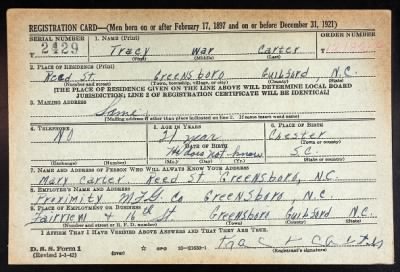 REGISTRATION CARD—(Men born on or after February 17, 1897 and on or before December 31, 1921)
SERIAL NUMBER 1. NAME (Print) ORDER NUMBER
T 2429 Tracy War Carter
(First) (Middle) (Last)
2. PLACE OF RESIDENCE (Print)
Reed St. Greensboro Guilford, N.C.
(Number and street) (Town, township, village, or city) (County) (State)
[THE PLACE OF RESIDENCE GIVEN ON THE LINE ABOVE WILL DETERMINE LOCAL BOARD
JURISDICTION; LINE 2 OF REGISTRATION CERTIFICATE WILL BE IDENTICAL]
3. MAILING ADDRESS
Same
[Mailing address if other than place indicated on line 2. If same insert word same]
4. TELEPHONE 5. AGE IN YEARS 6. PLACE OF BIRTH
NO 21 year Chester
DATE OF BIRTH (Town or county)
He does not know S.C.
(Exchange) (Number) (Mo.) (Day) (Yr.) (State or country)
7. NAME AND ADDRESS OF PERSON WHO WILL ALWAYS KNOW YOUR ADDRESS
Mary Carter. Reed St Greensboro, N.C.
8. EMPLOYER'S NAME AND ADDRESS
Proximity MFG Co Greensboro, N.C.
9. PLACE OF EMPLOYMENT OR BUSINESS
Fairview & 16th St Greensboro Guilford N.C.
(Number and street or R. F. D. number) (Town) (County) (State)
I AFFIRM THAT I HAVE VERIFIED ABOVE ANSWERS AND THAT THEY ARE TRUE.
D. S. S. Form 1
(Revised 1-1-42) (over) GPO 16—21630-1